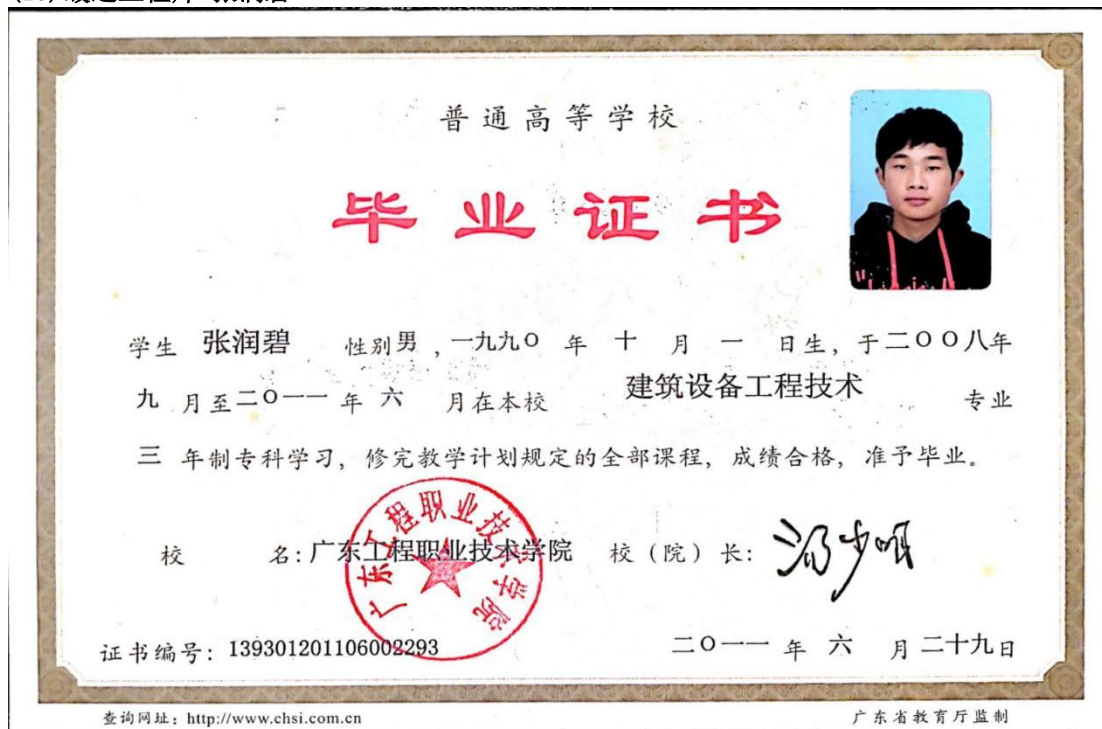 普通高等学校
毕业证书
学生 张润碧 性别男 ,一九九〇 年 十 月 一 日生, 于二〇〇八年
九 月至二〇一一 年 六 月在本校 建筑设备工程技术 专业
三 年制专科学习, 修完教学计划规定的全部课程, 成绩合格, 准予毕业。
校 名:广东工程职业技术学院 校 (院) 长:
广东工程职业技术学院
证书编号: 139301201106002293 二〇一一 年 六 月 二十九日
查询网址: http://www.chsi.com.cn 广东省教育厅监制